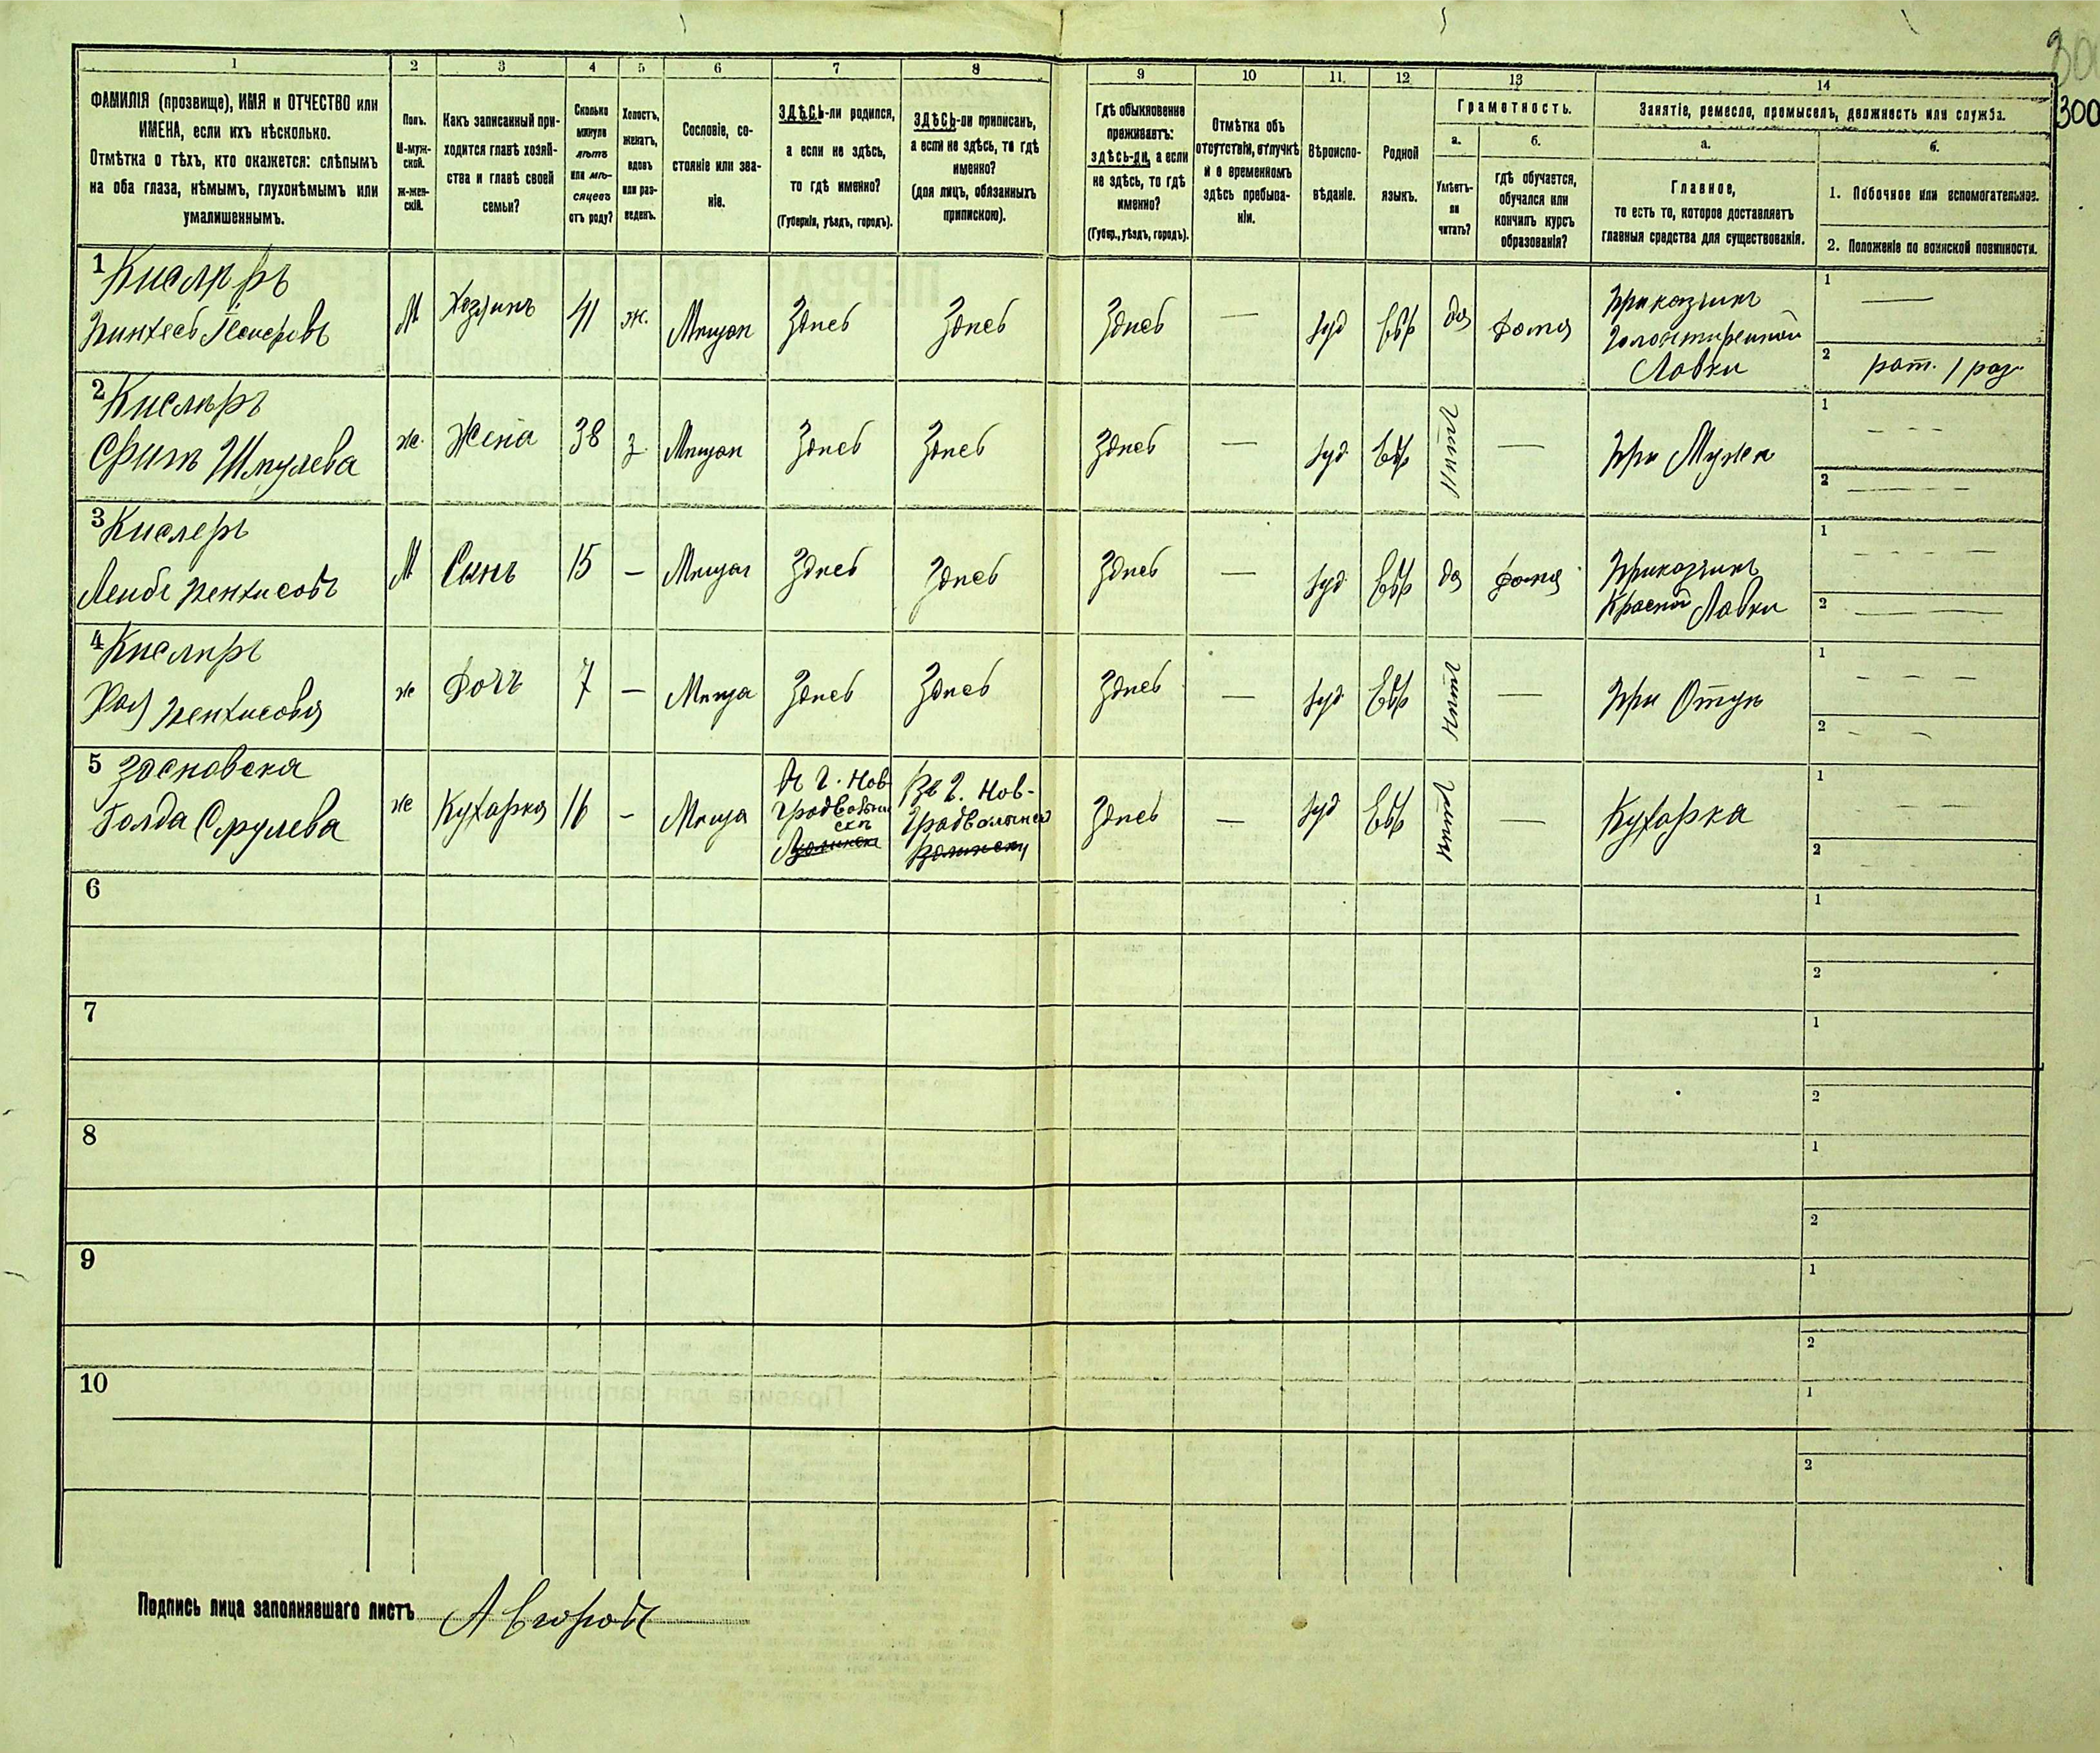 300
300
1 2 3 4 5 6 7 8 9 10 11. 12 13 14
ФАМИЛІЯ (прозвище), ИМЯ и ОТЧЕСТВО или
ИМЕНА, если ихъ нѣсколько.
Отмѣтка о тѣхъ, кто окажется: слѣпымъ
на оба глаза, нѣмымъ, глухонѣмымъ или
умалишеннымъ.
Полъ.
М-муж-
ской.
Ж-жен-
скій.
Какъ записанный при-
ходится главѣ хозяй-
ства и главѣ своей
семьи?
Сколько
минуло
лѣтъ
или мѣ-
сяцевъ
отъ роду?
Холостъ,
женатъ,
вдовъ
или раз-
веденъ.
Сословіе, со-
стояніе или зва-
ніе.
ЗДѢСЬ-ли родился,
а если не здѣсь,
то гдѣ именно?
(Губернія, уѣздъ, городъ).
ЗДѢСЬ-ли приписанъ,
а если не здѣсь, то гдѣ
именно?
(для лицъ, обязанныхъ
припискою).
Гдѣ обыкновенно
проживаетъ:
здѣсь-ли, а если
не здѣсь, то гдѣ
именно?
(Губер., уѣздъ, городъ).
Отмѣтка объ
отсутствіи, отлучкѣ
и о временномъ
здѣсь пребыва-
ніи.
Вѣроиспо-
вѣданіе.
Родной
языкъ.
Грамотность.
а.
Умѣетъ-
ли
читать?
б.
гдѣ обучается,
обучался или
кончилъ курсъ
образованія?
Занятіе, ремесло, промыселъ, должность или служба.
а.
Главное,
то есть то, которое доставляетъ
главныя средства для существованія.
б.
1. Побочное или вспомогательное.
2. Положеніе по воинской повинности.
1 Кислѣръ
Пинхесъ
М Хозяинъ 41 ж. Мѣщан Здѣсь Здѣсь Здѣсь — Iуд Евр да Дома
Приказчикъ
Галантирейной
Лавки
1 —
2 рат. 1 раз.
2 Кислѣръ
Шмулева
ж. Жена 38 з. Мѣщан Здѣсь Здѣсь Здѣсь — Iуд Евр — При Мужѣ
1 - - -
2 - - -
3 Кислеръ
Лейбъ Пенхисовъ
М Сынъ 15 — Мѣщан Здѣсь Здѣсь Здѣсь — Iуд Евр да Дома
Приказчикъ
Красной Лавки
1 - - -
2 - - -
4 Кислѣръ
Пенхисовя
ж Дочъ 7 — Мѣща Здѣсь Здѣсь Здѣсь — Iуд Евр — При Отцѣ
1 - - -
2 - -
5 Зосновска
Голда Срулева
ж Кухарка 16 - Мѣща
Въ г. Нов-
Здѣсь — Iуд Евр — Кухарка
1 - - -
2 - - -
6 1 2
7 1 2
8 1 2
9 1 2
10 1 2
Подпись лица заполнявшаго листъ